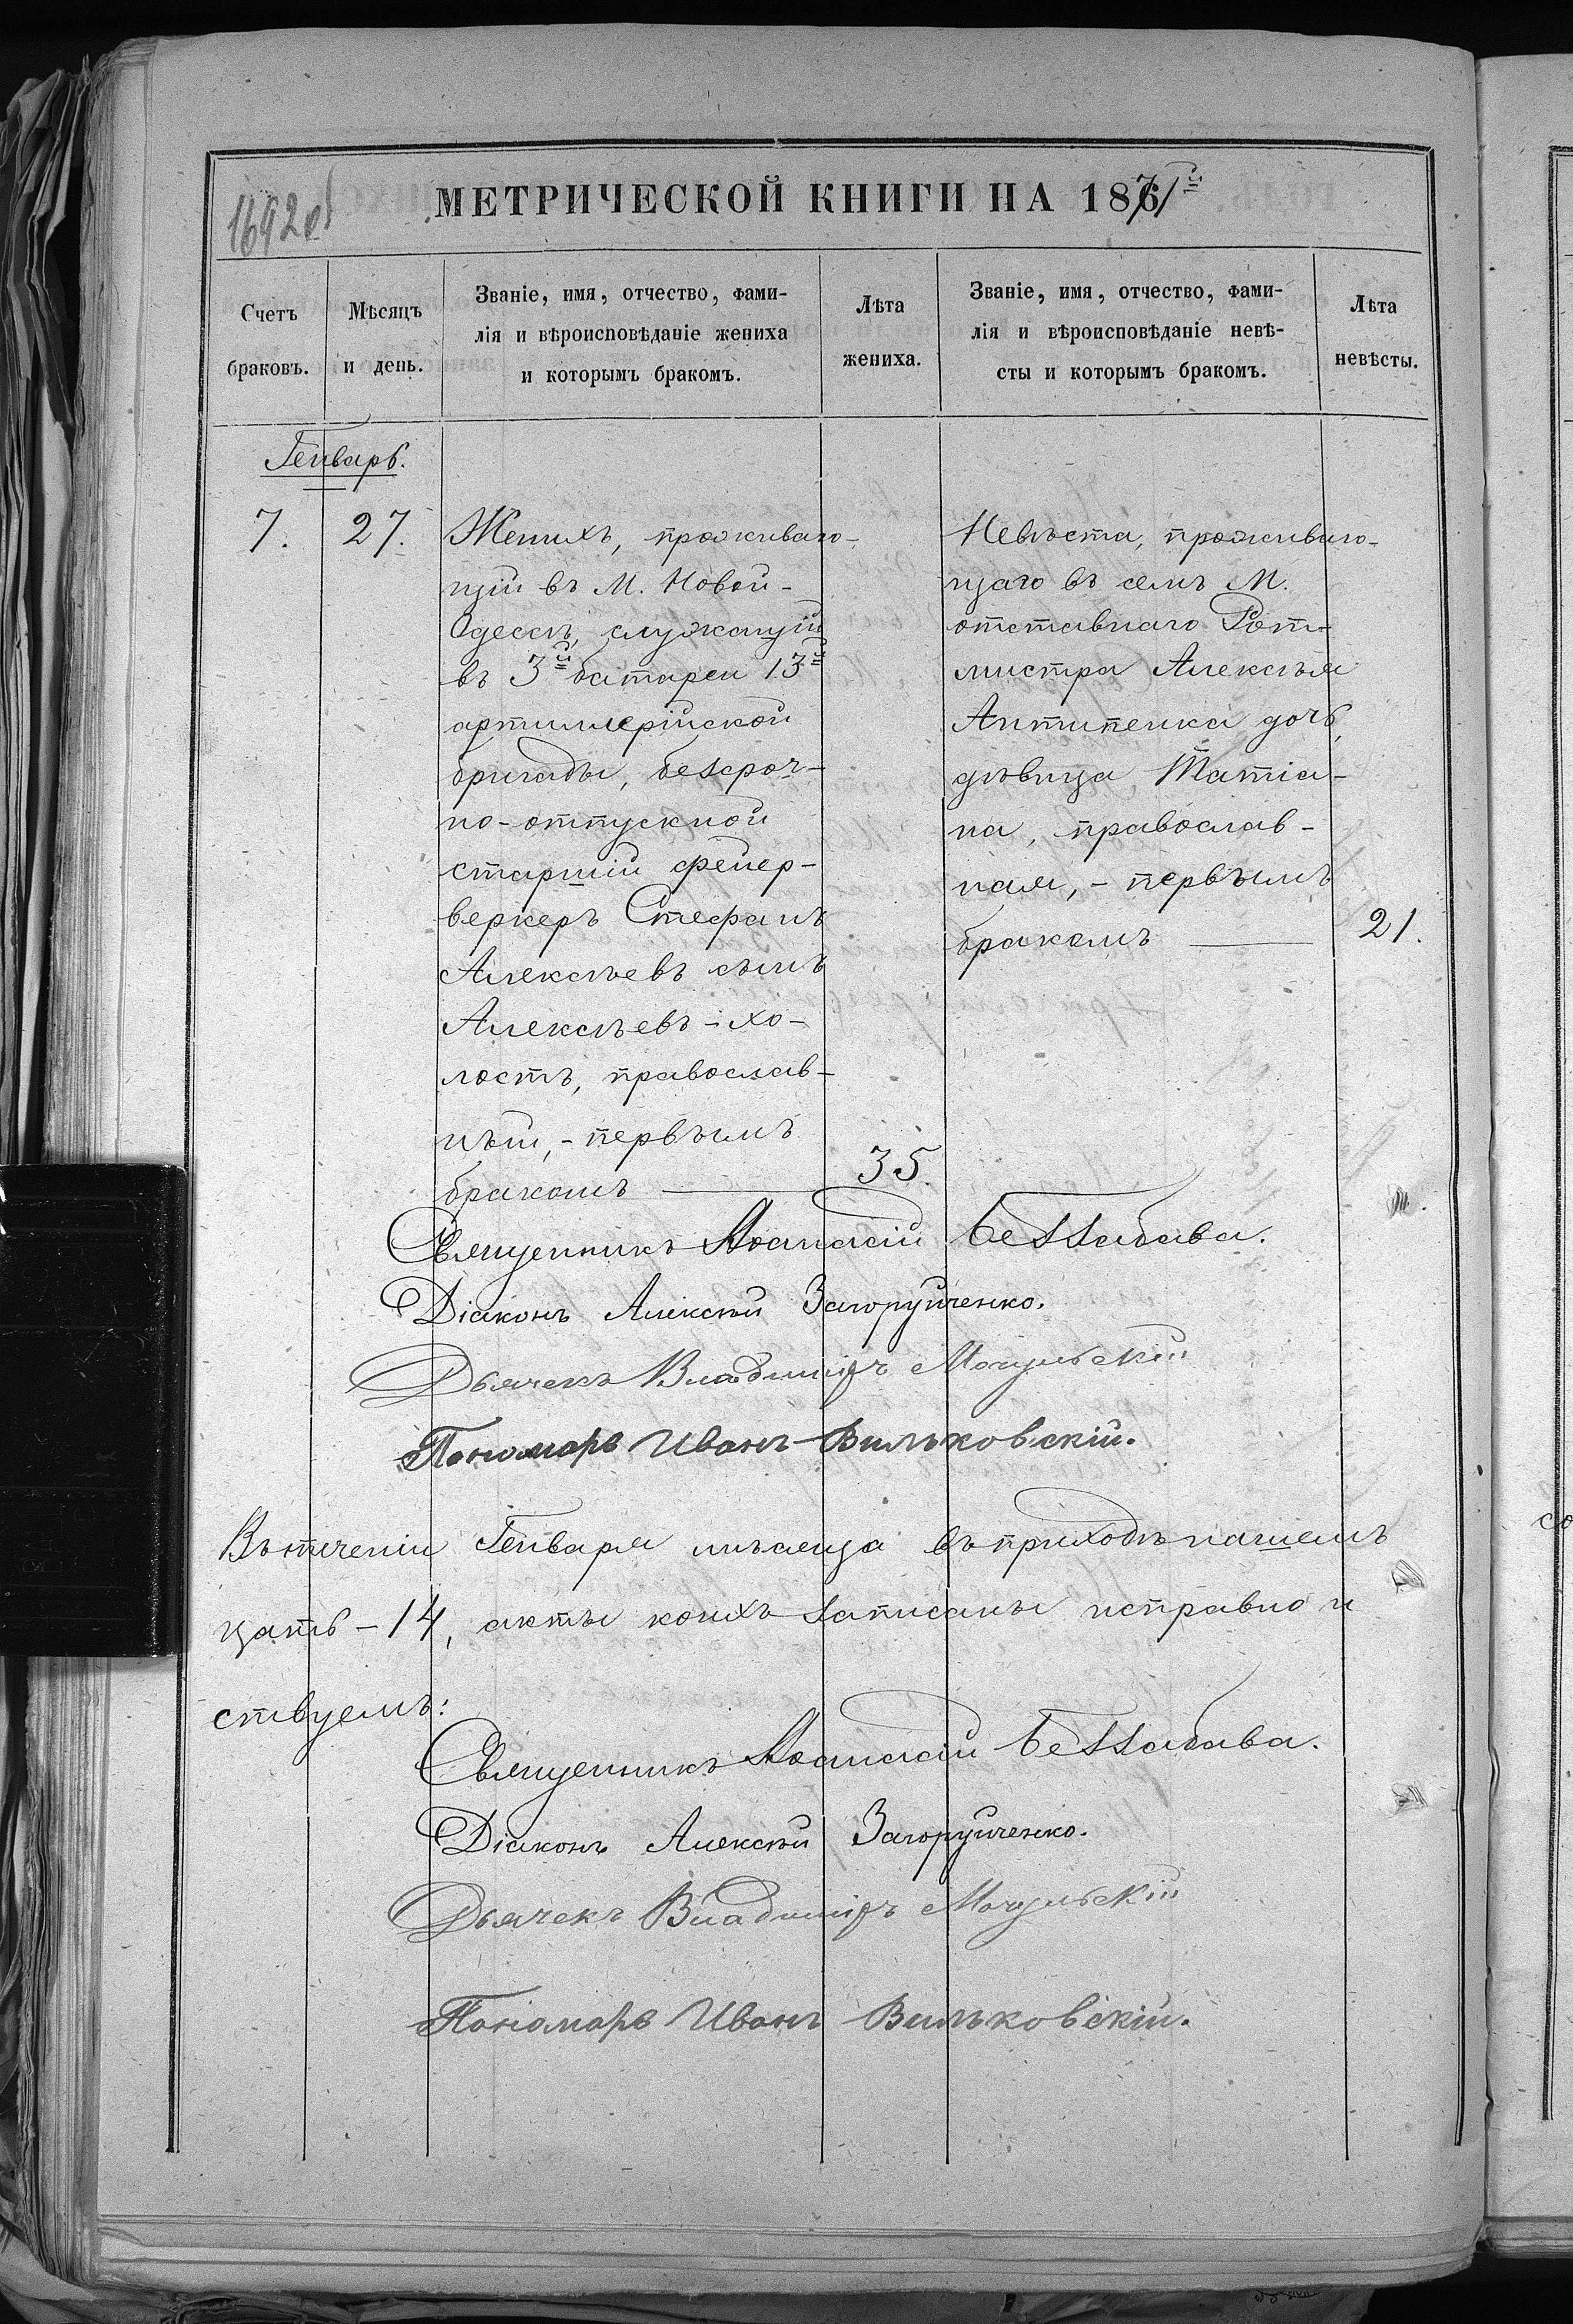 1692об
МЕТРИЧЕСКОЙ КНИГИ НА 1871й
Счетъ браковъ.
Мѣсяцъ и день.
Званіе, имя, отчество, фами-
лія и вѣроисповѣданіе жениха
и которымъ бракомъ.
Лѣта жениха.
Званіе, имя, отчество, фами-
лія и вѣроисповѣданіе невѣ-
сты и которымъ бракомъ.
Лѣта невѣсты.
Генварь.
7. 27.
Женихъ, проживаю-
щій въ М. Новой-
Одессѣ, служащій
въ 3й батареи 13й
артиллерійской
бригады, безсроч-
но-отпускной
старшій фейер-
веркеръ Стефанъ
Алексѣевъ сынъ
Алексѣевъ - хо-
лостъ, православ-
ный, - первымъ
бракомъ 35.
Невѣста, проживаю-
щаго въ семъ М.
отставнаго Рот-
мистра Алексѣя
Антипенка дочь,
дѣвица Татіа-
на, православ-
ная, - первымъ
бракомъ 21.
Священникъ Аѳанасій Беззабава.
Діаконъ Алексѣй Загоруйченко.
Дьячекъ Владиміръ Мочульскій
Пономарь Иванъ Вильковскій.
Въ теченіи Генваря мѣсяца въ приходѣ нашемъ
цать - 14, акты коихъ записаны исправно и
ствуемъ:
Священникъ Аѳанасій Беззабава.
Діаконъ Алексѣй Загоруйченко.
Дьячекъ Владиміръ Мочульскій
Пономарь Иванъ Вильковскій.